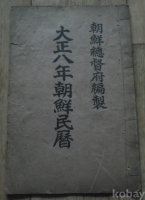 朝鮮總督府編製
大正八年朝鮮民曆
kobay